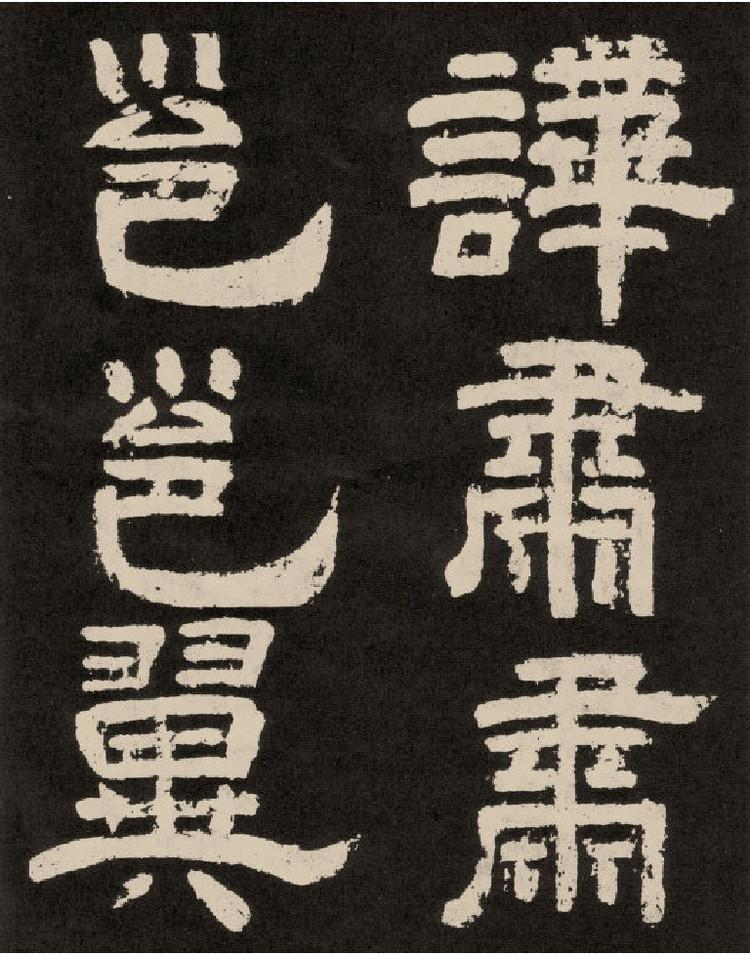 譁肅肅
邕邕翼